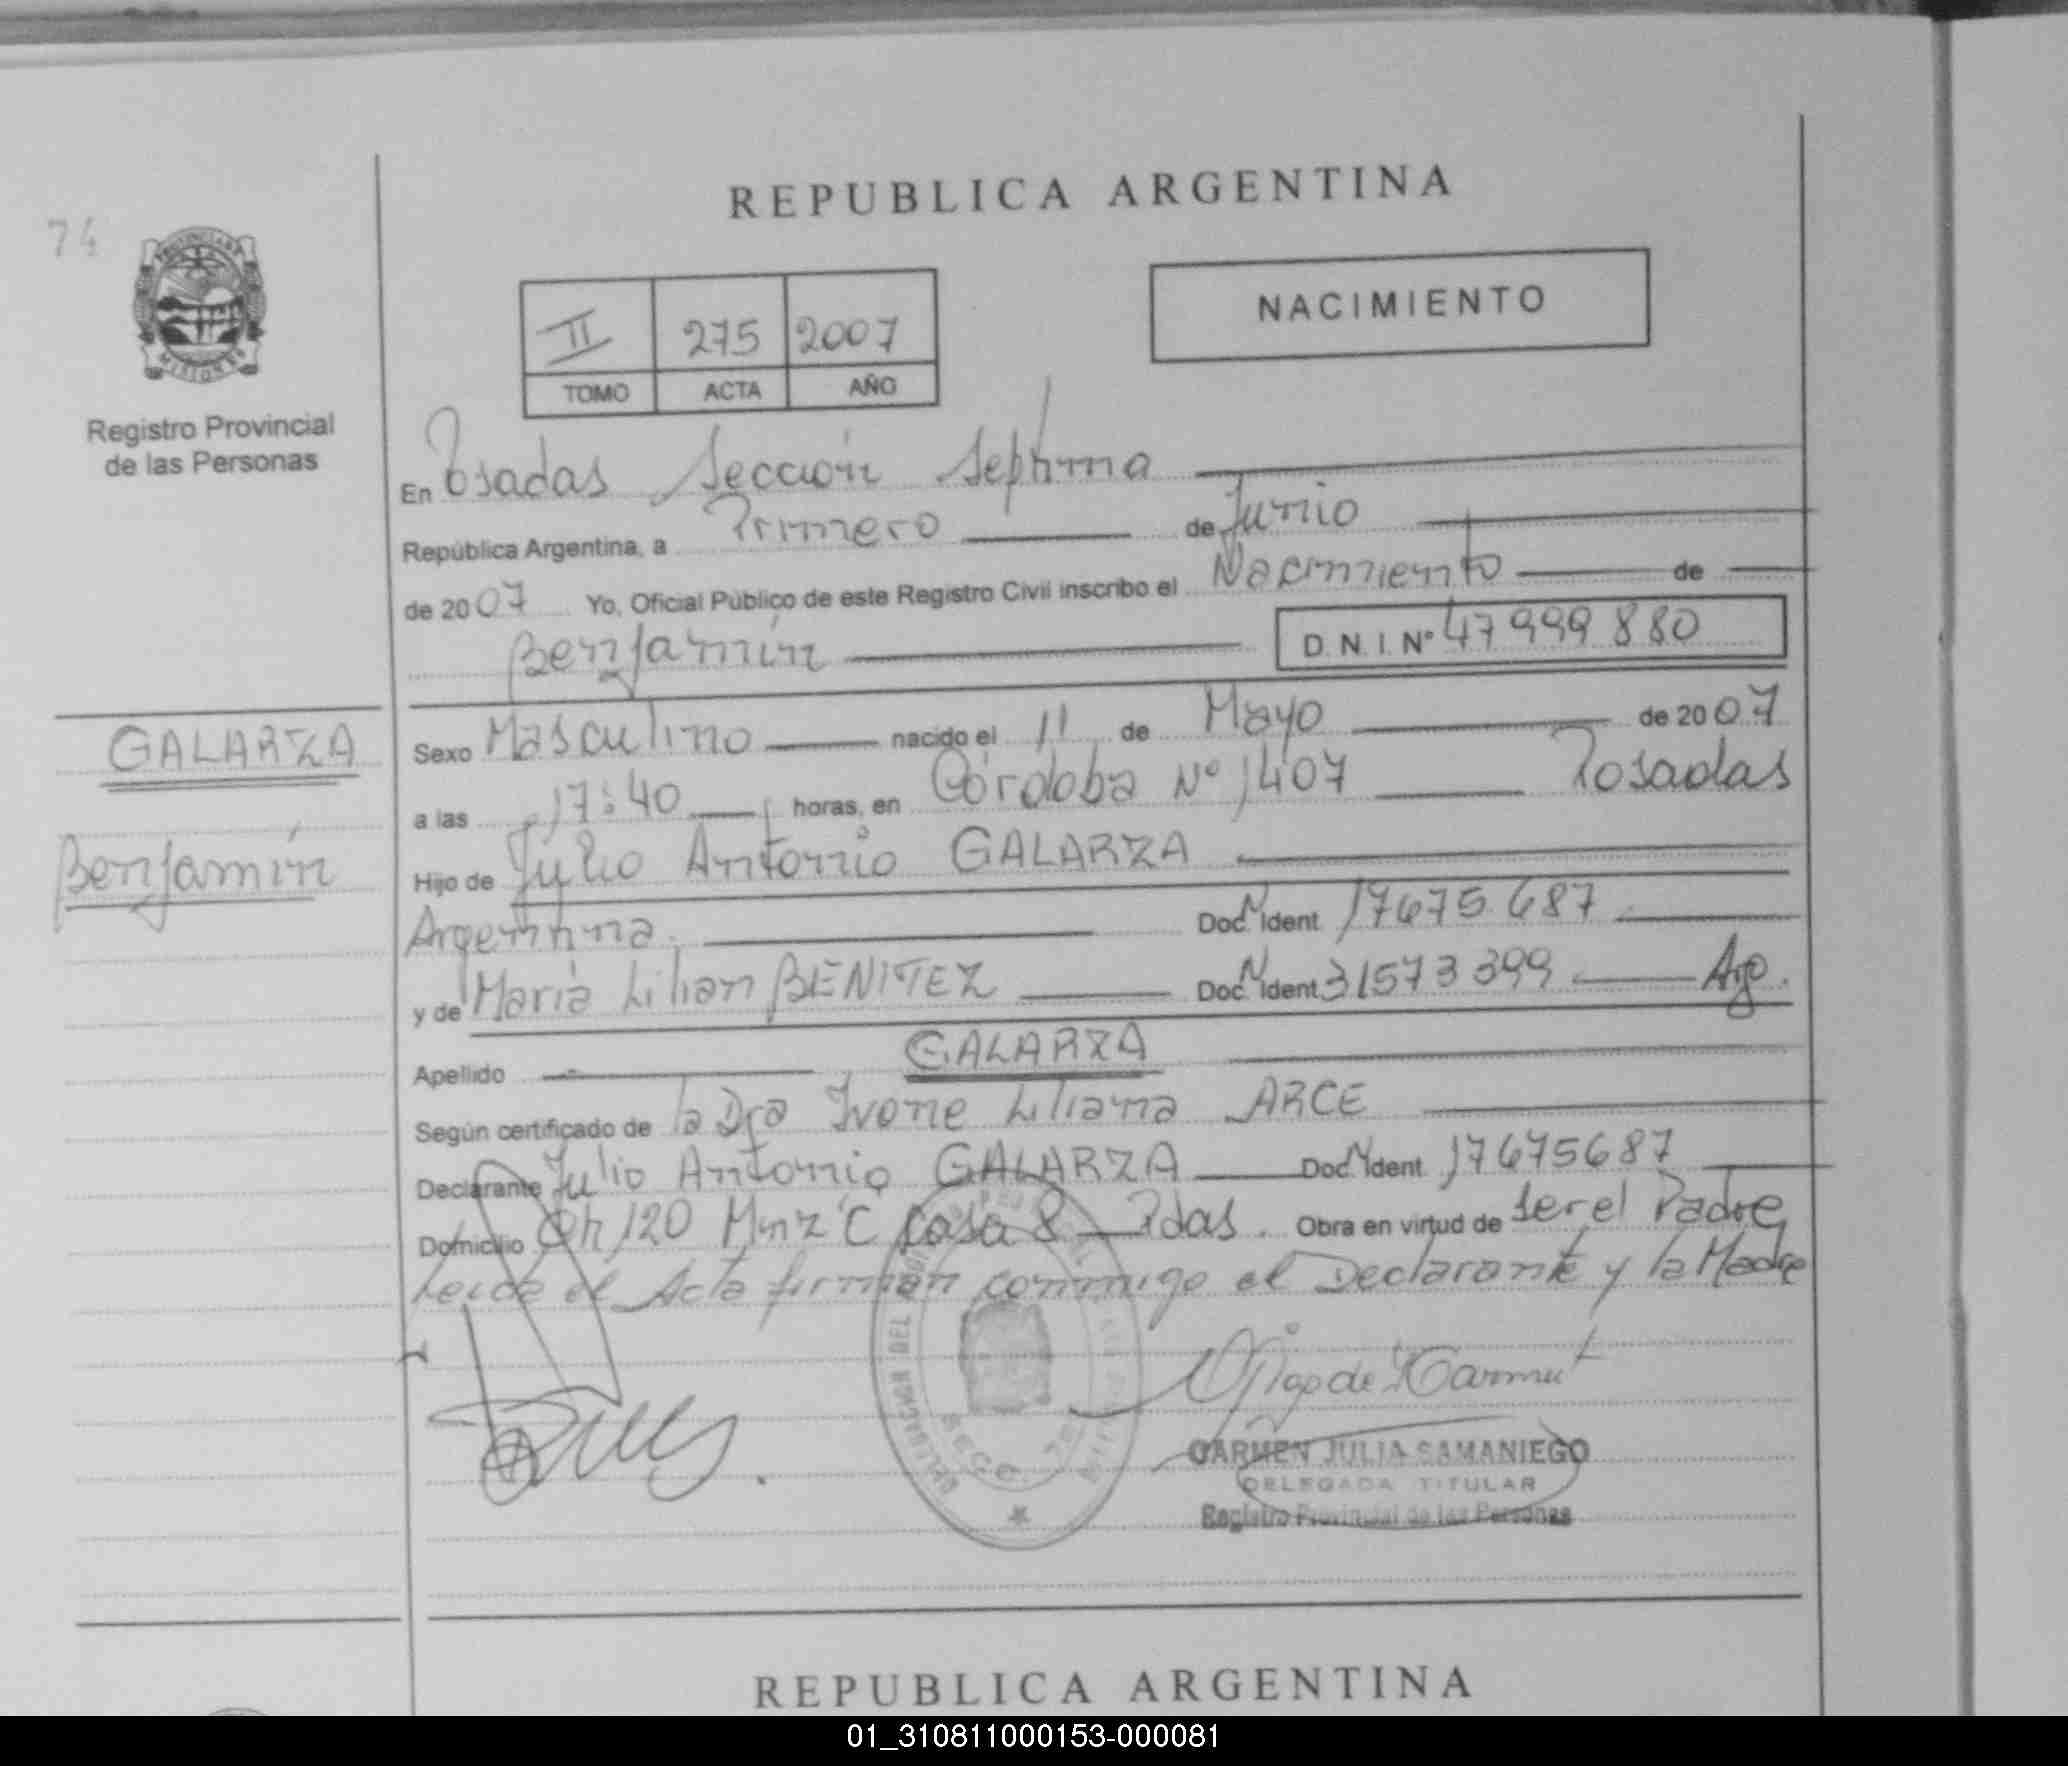 74
PROVINCIA DE
MISIONES
Registro Provincial
de las Personas
REPUBLICA ARGENTINA
II 275 2007
TOMO ACTA AÑO
NACIMIENTO
En Posadas Sección Septima
República Argentina, a Primero de Junio
de 2007 Yo, Oficial Público de este Registro Civil inscribo el Nacimiento de
Benjamín D.N.I.Nº 47 999 880
GALARZA
Benjamín
Sexo Masculino nacido el 11 de Mayo de 2007
a las 17:40 horas, en Córdoba Nº 1407 Posadas
Hijo de Julio Antonio GALARZA
Argentina. Doc. N Ident 17675687
y de María Lilian BENITEZ Doc. N Ident 31573399 Arg.
Apellido GALARZA
Según certificado de la Dra Ivone Liliana ARCE
Declarante Julio Antonio GALARZA Doc. N Ident 17675687
Domicilio Ch 120 Mnz C casa 8 Pdas. Obra en virtud de ser el Padre
Leida el Acta firman conmigo el Declarante y la Madre
SECC. 7ª
CARMEN JULIA SAMANIEGO
DELEGADA TITULAR
Registro Provincial de las Personas
REPUBLICA ARGENTINA
01_310811000153-000081